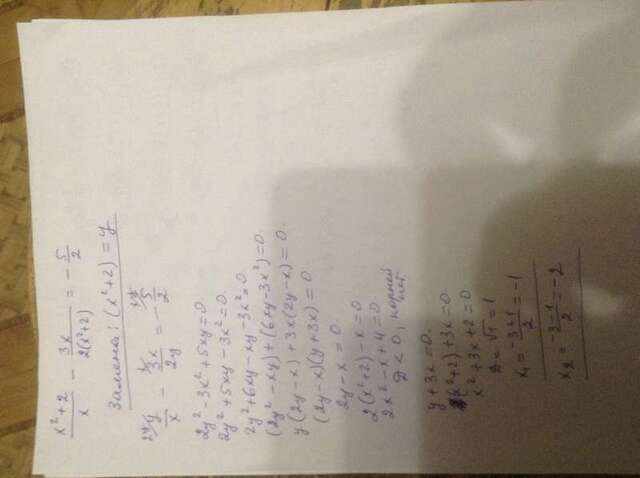 x²+2/x - 3x/2(x²+2) = -5/2
Замена: (x²+2) = y
2y y/x - x 3x/2y = -xy 5/2
2y² - 3x² + 5xy = 0
2y² + 5xy - 3x² = 0
2y² + 6xy - xy - 3x² = 0
(2y² - xy) + (6xy - 3x²) = 0
y(2y - x) + 3x(2y - x) = 0
(2y - x)(y + 3x) = 0
2y - x = 0
2(x²+2) - x = 0
2x² - x + 4 = 0
D < 0, корней нет
y + 3x = 0
(x²+2) + 3x = 0
x² + 3x + 2 = 0
D = √1 = 1
x₁ = -3+1/2 = -1
x₂ = -3-1/2 = -2